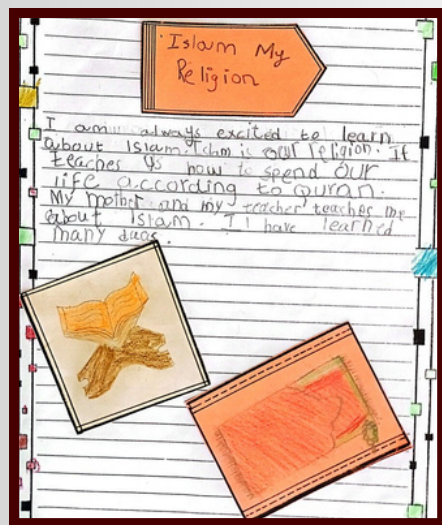 Islam My
Religion
I am always excited to learn
about Islam. Ichm is our religion. It
teaches us how to spend our
life according to quran.
My mother and my teacher teaches me
about Islam. I I have learned
many duas.